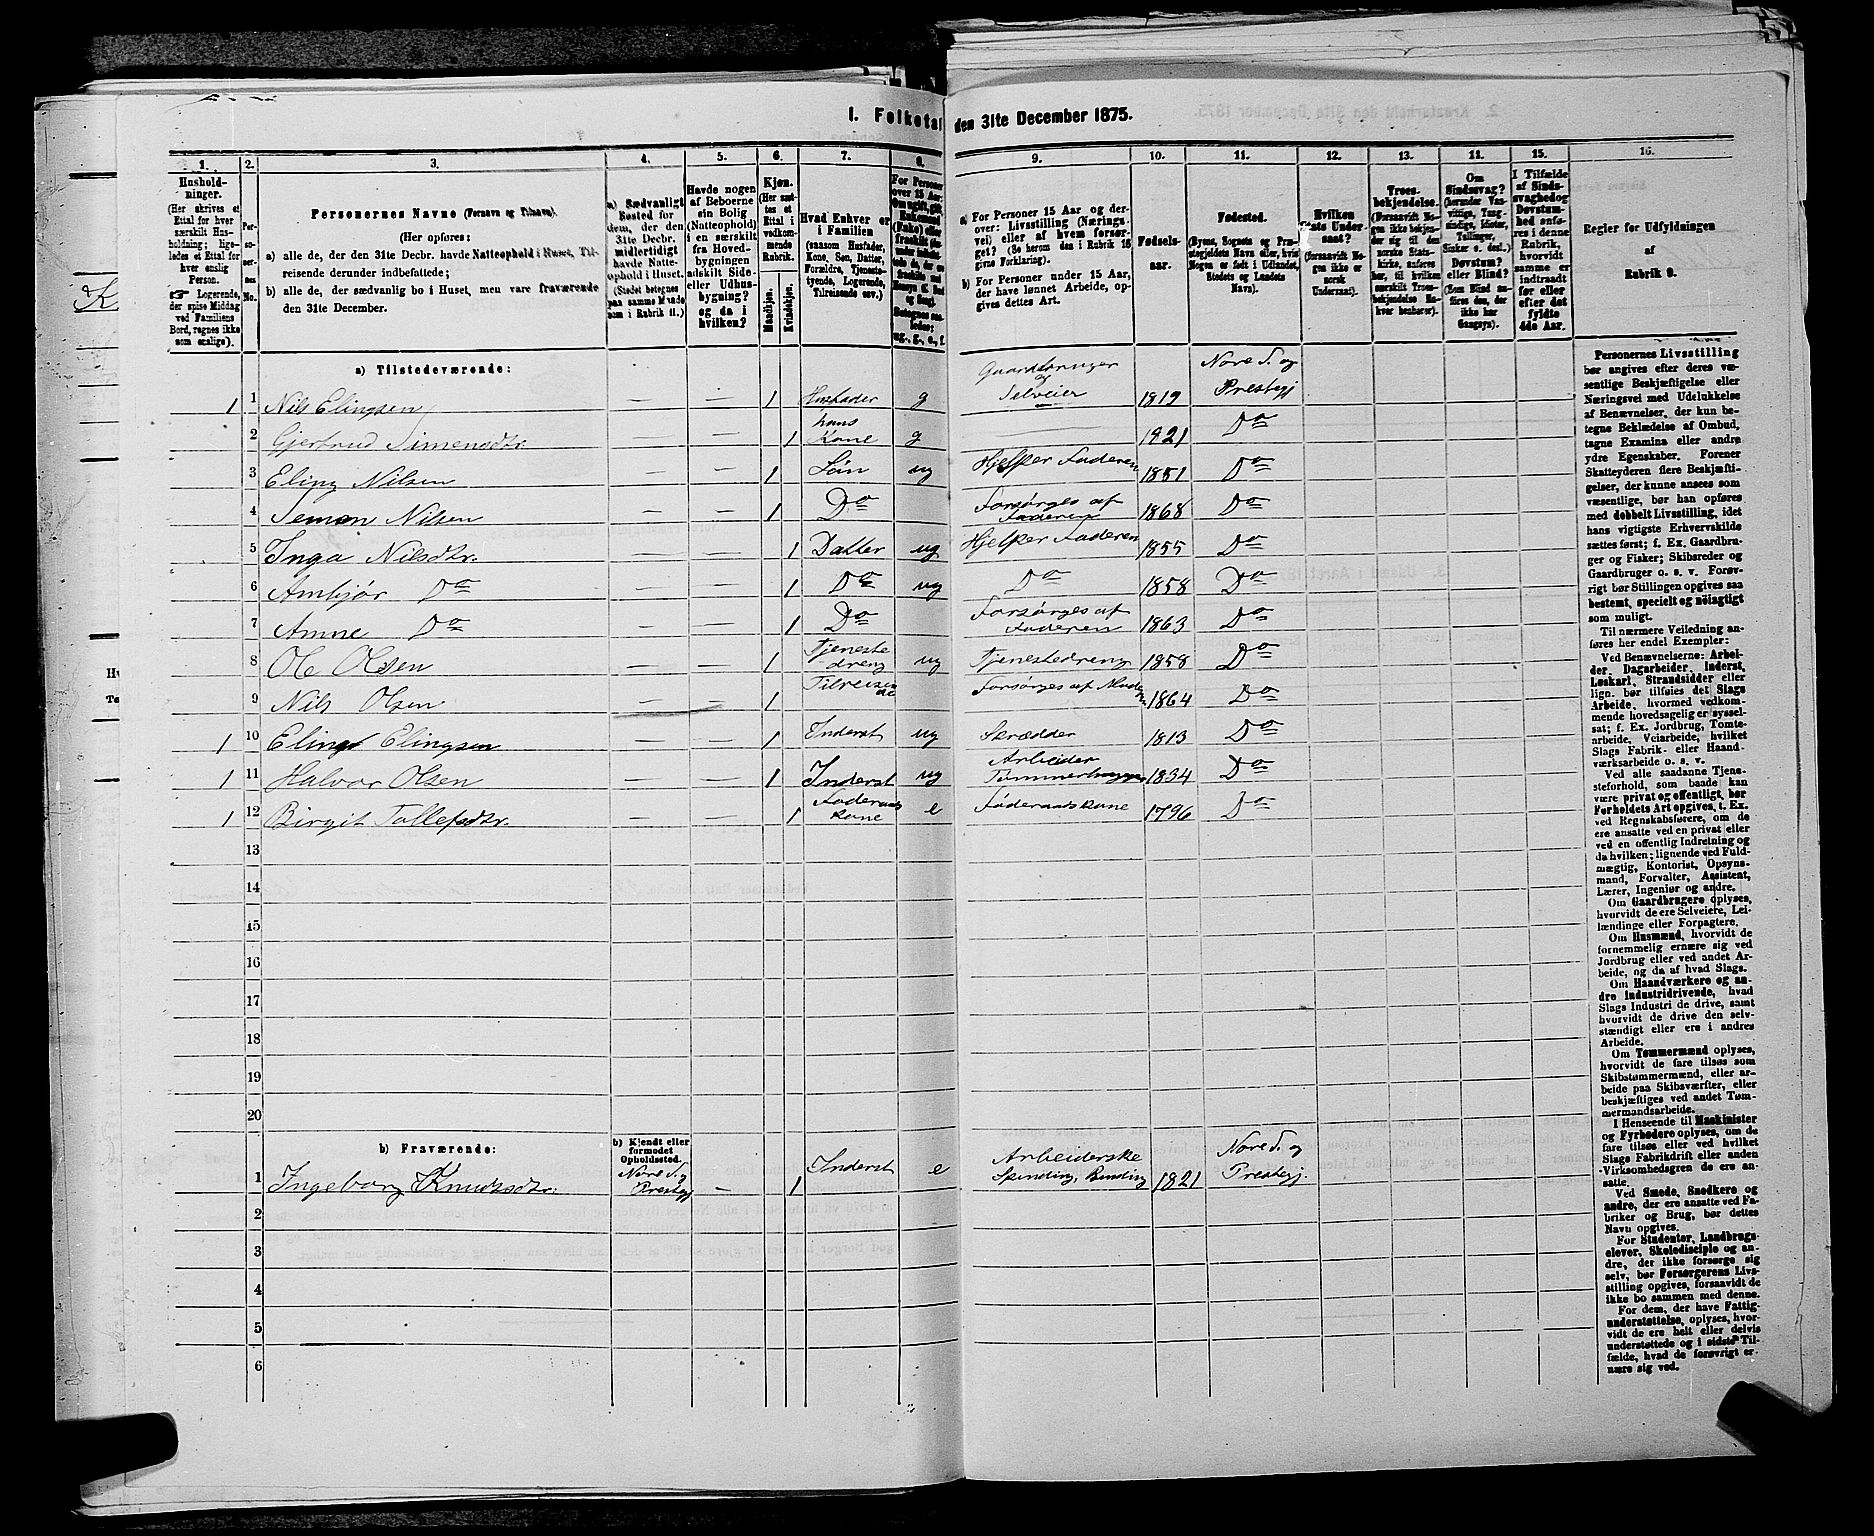 I. Folketal den 31te December 1875.
1. 2. 3. 4. 5. 6. 7. 8. 9. 10. 11. 12. 13. 14. 15. 16.
Hushold-
ninger.
(Her skrives et
Ettal for hver
særskilt Hus-
holdning; lige-
ledes et Ettal for
hver enslig
Person.
Logerende,
der spise Middag
ved Familiens
Bord, regnes ikke
som enslige).
Per-
so-
ner-
nes
No.
Personernes Navne (Fornavn og Tilnavn).
(Her opføres:
a) alle de, der den 31te Decbr. havde Natteophold i Huset, Til-
reisende derunder indbefattede;
b) alle de, der sædvanlig bo i Huset, men vare fraværende
den 31te December.
a) Sædvanligt
Bosted for
dem, der den
31te Decbr.
midlertidigt
havde Natte-
ophold i Huset.
(Stedet betegnes
paa samme Maade
som i Rubrik 11.)
Havde nogen
af Beboerne
sin Bolig
(Natteophold)
i en særskilt
fra Hoved-
bygningen
adskilt Side-
eller Udhus-
bygning?
og da i
hvilken?
Kjøn.
(Her sæt-
tes et
Ettal i
vedkom-
mende
Rubrik.
Mandkjøn.
Kvindekjøn.
Hvad Enhver er
i Familien
(saasom Husfader,
Kone, Søn, Datter,
Forældre, Tjeneste-
tyende, Logerende,
Tilreisende osv.)
For Personer
over 15 Aar:
a) For Personer 15 Aar og der-
over: Livsstilling (Nærings-
vei) eller af hvem forsør-
get? (Se herom den i Rubrik 16
givne Forklaring).
b) For Personer under 15 Aar,
der have lønnet Arbeide, op-
gives dettes Art.
Fødsels-
aar.
Fødested.
(Byens, Sognets og Præ-
stegjeldets Navn eller, hvis
Nogen er født i Udlandet,
Stedets og Landets
Navn).
Hvilken
Stats Under-
saat?
(forsaavidt No-
gen ikke er
norsk
Undersaat).
Troes-
bekjendelse.
(Forsaavidt No-
gen ikke bekjen-
der sig til den
norske Stats-
kirke, anføres
her, til hvilken
særskilt Troes-
bekjendelse En-
hver henhører).
Om
Sindssvag?
Døvstum?
eller Blind?
(Som Blind an-
føres den, der
ikke har
Gangsyn).
I Tilfælde
af Sinds-
svaghed og
Døvstum-
hed anfø-
res i denne
Rubrik,
hvorvidt
samme er
indtraadt
før eller
efter det
fyldte
4de Aar.
Regler for Udfyldningen
af
Rubrik 9.
a) Tilstedeværende:
1 1 Nils Elingsen — — 1 Husfader g Gaardbruger og Selveier 1819 Nore S. og Prestegj
2 Gjertrud Simensdtr. — — 1 hans Kone g 1821 Do
3 Eling Nilsen — — 1 Søn ug Hjelper Faderen 1851 Do
4 Semon Nilsen — — 1 Do Forsørges af Faderen 1868 Do
5 Inga Nilsdtr. — — 1 Datter ug Hjelper Faderen 1855 Do
6 Ambjør Do — — 1 Do ug Do 1858 Do
7 Anne Do — — 1 Do Forsørges af Faderen 1863 Do
8 Ole Olsen — — 1 Tjeneste dreng ug Tjenestedreng 1858 Do
9 Nils Olsen 1 Tilreisende Forsørges af Moderen 1864 Do
1 10 Eling Elingsen — — 1 Inderst ug Skrædder 1813 Do
1 11 Halvor Olsen — — 1 Inderst ug Arbeider Tømmerhugger 1834 Do
1 12 Birgit Tollefsdtr. — — 1 Føderaads kone e Føderaadskone 1796 Do
13
14
15
16
17
18
19
20
b) Fraværende:
b) Kjendt eller
formodet
Opholdssted.
1 Ingeborg Knudsdtr. Nore S. og Prestegj — 1 Inderst e Arbeiderske Spinding, Binding 1821 Nore S. og Prestegj.
2
3
4
5
6
Personernes Livsstilling
bør angives efter deres væ-
sentlige Beskjæftigelse eller
Næringsvei med Udelukkelse
af Benævnelser, der kun be-
tegne Beklædelse af Ombud,
tagne Examina eller andre
ydre Egenskaber. Forener
Skatteyderen flere Beskjæfti-
gelser, der kunne ansees som
væsentlige, bør han opføres
med dobbelt Livsstilling, idet
hans vigtigste Erhvervskilde
sættes først; f. Ex. Gaardbru-
ger og Fisker; Skibsreder og
Gaardbruger o. s. v. Forøv-
rigt bør Stillingen opgives saa
bestemt, specielt og nøiagtigt
som muligt.
Til nærmere Veiledning an-
føres her endel Exempler:
Ved Benævnelserne: Arbei-
der, Dagarbeider, Inderst,
Løskarl, Strandsidder eller
lign. bør tilføies det Slags
Arbeide, hvormed vedkom-
mende hovedsagelig er syssel-
sat; f. Ex. Jordbrug, Tomte-
arbeide, Veiarbeide, hvilket
Slags Fabrik- eller Haand-
værksarbeide o. s. v.
Ved alle saadanne Tjene-
steforhold, som baade kan
være privat og offentligt, bør
Forholdets Art opgives, t. Ex.
ved Regnskabsførere, om de
ere ansatte ved en privat eller
ved en offentlig Indretning og
da hvilken; lignende ved Fuld-
mægtig, Kontorist, Opsyns-
mand, Forvalter, Assistent,
Lærer, Ingeniør og andre.
Om Gaardbrugere oplyses,
hvorvidt de ere Selveiere, Lei-
lændinge eller Forpagtere.
Om Husmænd, hvorvidt de
fornemmelig ernære sig ved
Jordbrug eller ved andet Ar-
beide, og da af hvad Slags.
Om Haandværkere og an-
dre industridrivende, hvad
Slags Industri de drive, samt
hvorvidt de drive den selv-
stændigt eller ere i andres
Arbeide.
Om Tømmermænd oplyses,
hvorvidt de fare tilsøs som
Skibstømmermænd, eller ar-
beide paa Skibsværfter, eller
beskjæftiges ved andet Tøm-
mermandsarbeide.
I Henseende til Maskinister
og Fyrbødere oplyses, om de
fare tilsøs eller ved hvilket
Slags Fabrikdrift eller anden
Virksomhedsgren de ere an-
satte.
Ved Smede, Snedkere og
andre, der ere ansatte ved Fa-
briker og Brug, bør dettes
Navn opgives.
For Studenter, Landbrugs-
elever, Skoledisciple og an-
dre, der ikke forsørge sig
selv, bør Forsørgerens Livs-
stilling opgives, forsaavidt de
ikke bo sammen med denne.
For dem, der have Fattig-
understøttelse, oplyses, hvor-
vidt de ere helt eller delvis
understøttede og i sidste Til-
fælde, hvad de forøvrigt er-
nære sig ved.